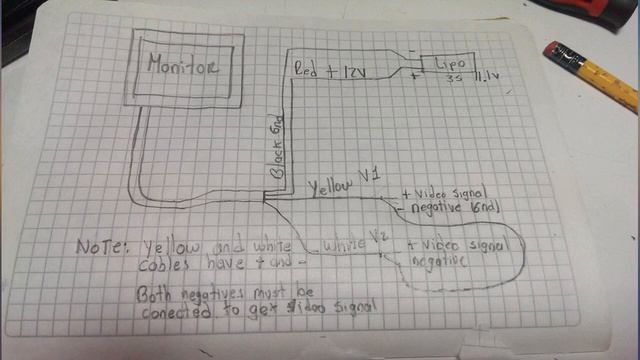 Monitor
Red + 12V
-
+
Lipo
3s
11.1v
Black Gnd
Yellow V1
+ Video signal
- negative (Gnd)
white V2
+ Video signal
- negative
Note: Yellow and white
cables have + and -
Both negatives must be
conected to get Video signal